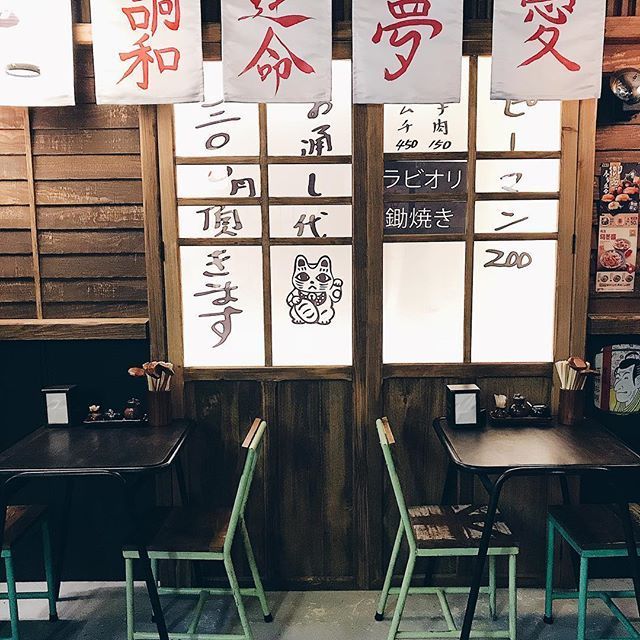 調和
運命
夢
愛
ピーマン 200
牛肉 150
ムチ 450
ラビオリ
鋤焼き
お通し代
三二〇円頂きます